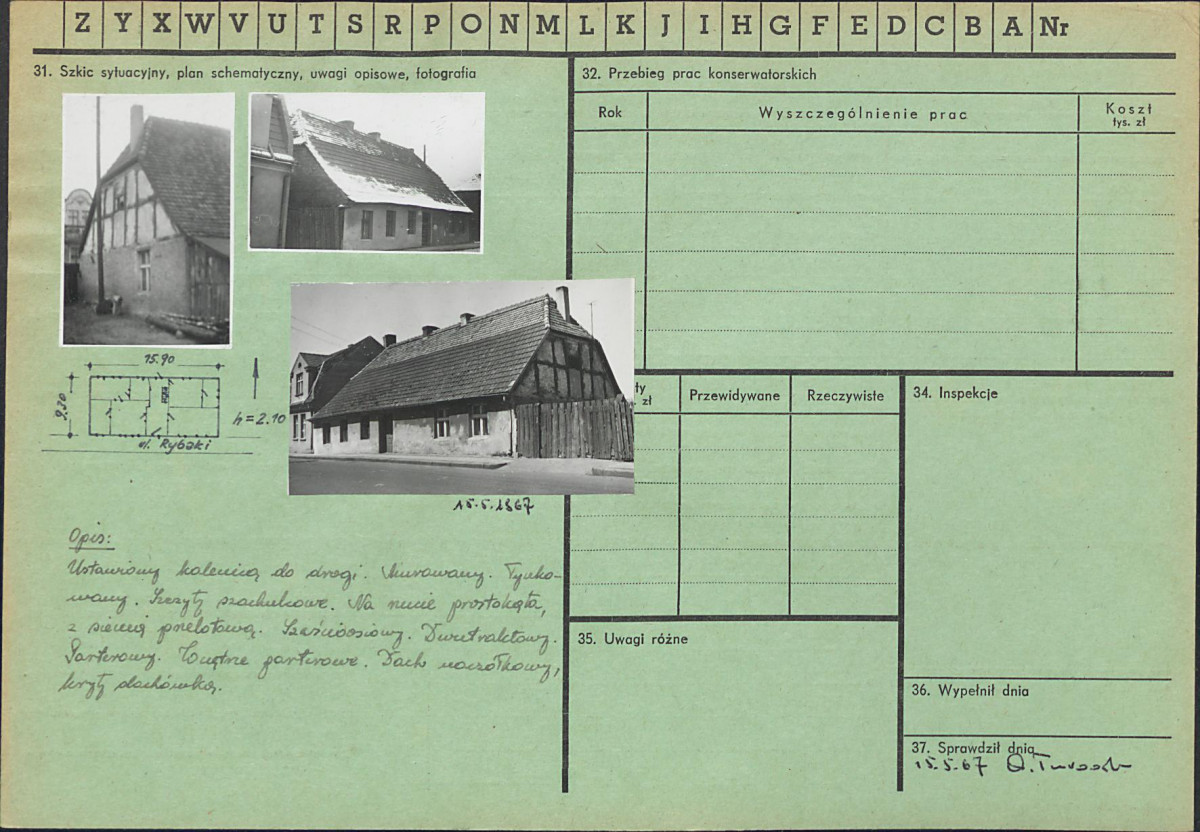 Z Y X W V U T S R P O N M L K J I H G F E D C B A Nr
31. Szkic sytuacyjny, plan schematyczny, uwagi opisowe, fotografia
15.90
9.30
h = 2.10
ul. Rybaki
15.5.1967
Opis:
Ustawiony kalenicą do drogi. Murowany. Tynko-
wany. Szczyty szachulcowe. Na rzucie prostokąta,
z sienią przelotową. Sześcioosiowy. Dwutraktowy.
Parterowy. Wnętrze parterowe. Dach naczółkowy,
kryty dachówką.
32. Przebieg prac konserwatorskich
Rok
Wyszczególnienie prac
Koszt
tys. zł
ty
zł
Przewidywane
Rzeczywiste
34. Inspekcje
35. Uwagi różne
36. Wypełnił dnia
37. Sprawdził dnia
15.5.67